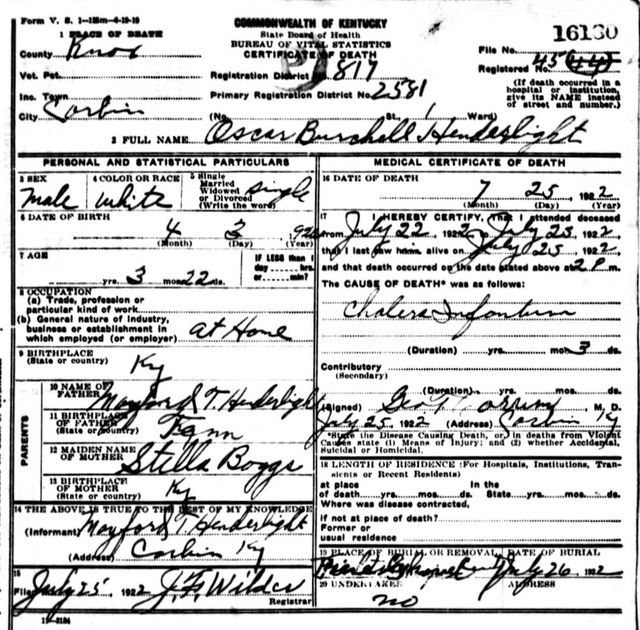 Form V. S. 1-125m-6-19-19
COMMONWEALTH OF KENTUCKY
State Board of Health
BUREAU OF VITAL STATISTICS
CERTIFICATE OF DEATH
16130
1 PLACE OF DEATH
County Knox
File No.
Registered No. 45 (44)
Vot. Pct.
Registration District No. 817
Inc. Town
Primary Registration District No. 2581
City Corbin (No. St., Ward)
(If death occurred in a hospital or institution, give its NAME instead of street and number.)
2 FULL NAME Oscar Burchell Henderlight
PERSONAL AND STATISTICAL PARTICULARS
3 SEX male
4 COLOR OR RACE White
5 Single Married Widowed or Divorced (Write the word) Single
6 DATE OF BIRTH
4 3 192
(Month) (Day) (Year)
7 AGE
yrs. 3 mos. 22 ds.
IF LESS than 1 day hrs. or min.?
8 OCCUPATION
(a) Trade, profession or particular kind of work
(b) General nature of industry, business or establishment in which employed (or employer) at Home
9 BIRTHPLACE (State or country) Ky
PARENTS
10 NAME OF FATHER Mayford T. Henderlight
11 BIRTHPLACE OF FATHER (State or country) Tenn
12 MAIDEN NAME OF MOTHER Stella Boggs
13 BIRTHPLACE OF MOTHER (State or country) Ky
14 THE ABOVE IS TRUE TO THE BEST OF MY KNOWLEDGE
(Informant) Mayford T. Henderlight
(Address) Corbin Ky
15
Filed July 25, 1922 J. F. Wilder
Registrar
11-3184
MEDICAL CERTIFICATE OF DEATH
16 DATE OF DEATH
7 25 1922
(Month) (Day) (Year)
17 I HEREBY CERTIFY, That I attended deceased
from July 22, 1922, to July 25, 1922,
that I last saw him alive on July 25, 1922,
and that death occurred on the date stated above at 2 P m.
The CAUSE OF DEATH* was as follows:
Cholera Infantum
(Duration) yrs. mos. 3 ds.
Contributory
(Secondary)
(Duration) yrs. mos. ds.
(Signed) Geo M. D.
July 25, 1922 (Address) Corbin Ky
*State the Disease Causing Death, or, in deaths from Violent Causes state (1) Means of Injury; and (2) whether Accidental, Suicidal or Homicidal.
18 LENGTH OF RESIDENCE (For Hospitals, Institutions, Transients or Recent Residents)
at place of death yrs. mos. ds. In the State yrs. mos. ds.
Where was disease contracted,
if not at place of death?
Former or usual residence
19 PLACE OF BURIAL OR REMOVAL DATE OF BURIAL
July 26, 1922
20 UNDERTAKER ADDRESS
no